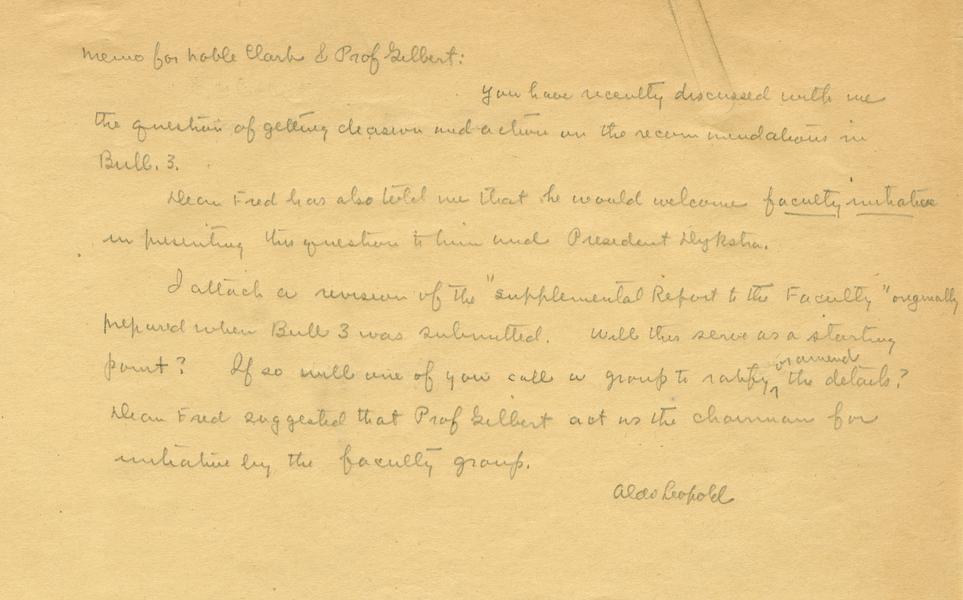 Memo for Noble Clark & Prof Gilbert:
You have recently discussed with me
the question of getting decision and action on the recommendations in
Bull. 3.
Dean Fred has also told me that he would welcome faculty initiative
in presenting this question to him and President Dykstra.
I attach a revision of the "Supplemental Report to the Faculty" originally
prepared when Bull 3 was submitted. Will this serve as a starting
or amend
point? If so will one of you call a group to ratify the details?
Dean Fred suggested that Prof Gilbert act as the chairman for
initiative by the faculty group.
Aldo Leopold